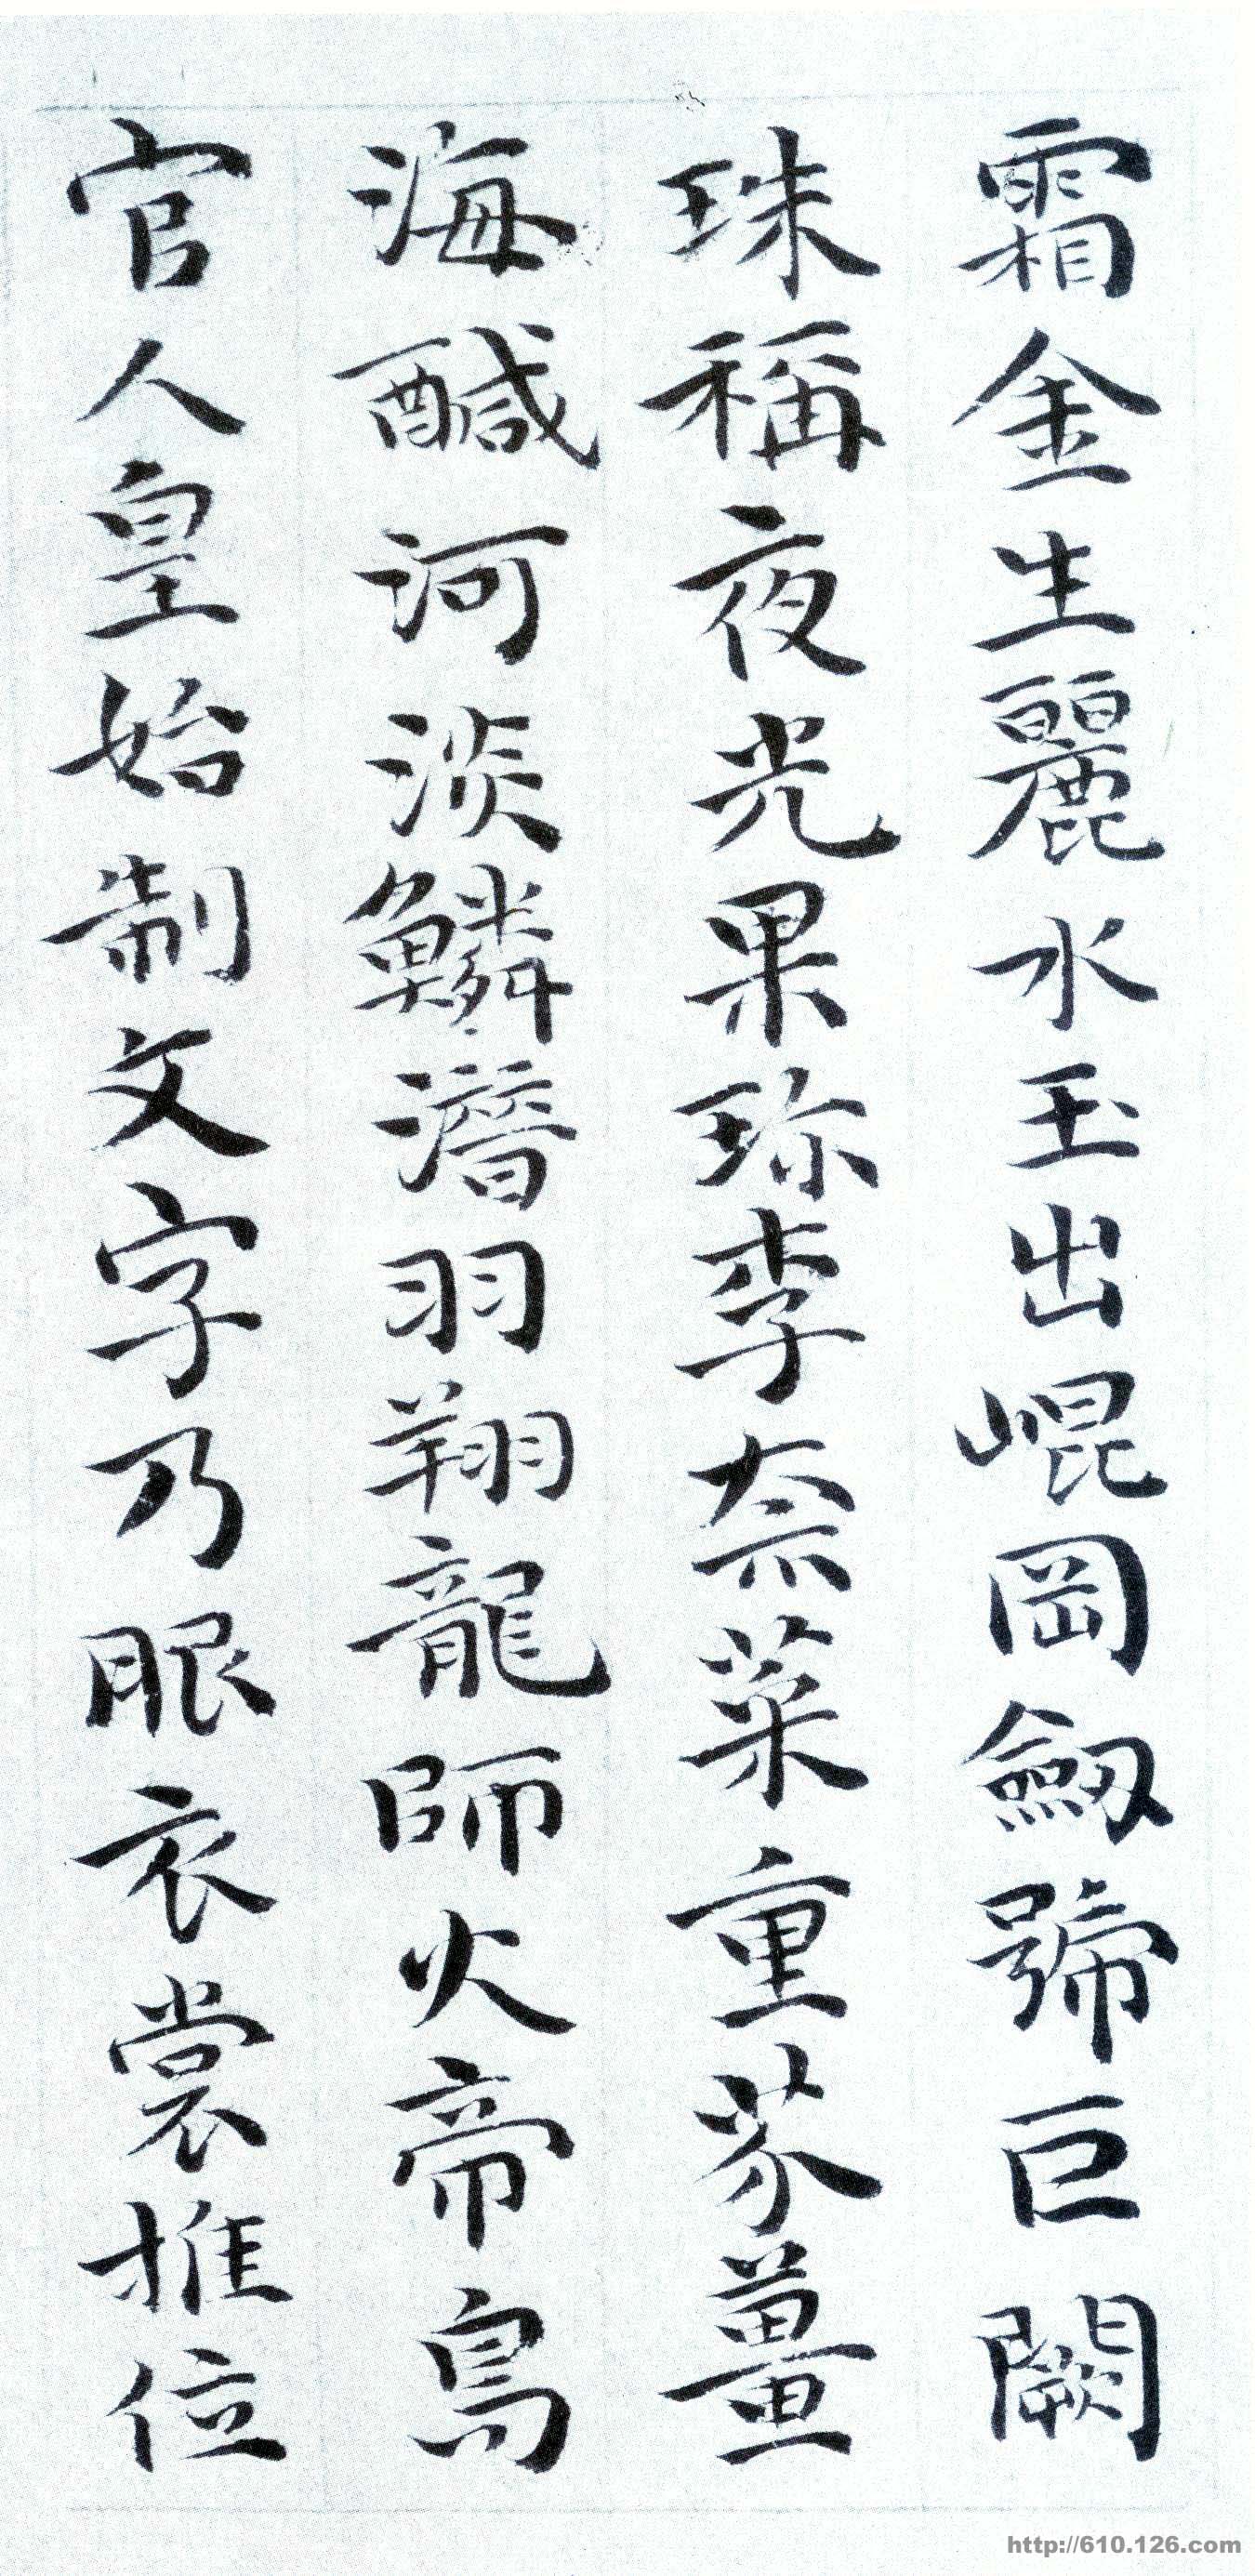 霜金生麗水玉出崐岡劒號巨闕
珠稱夜光果珎李柰菜重芥薑
海醎河淡鱗潛羽翔龍師火帝鳥
官人皇始制文字乃服衣裳推位
http://610.126.com